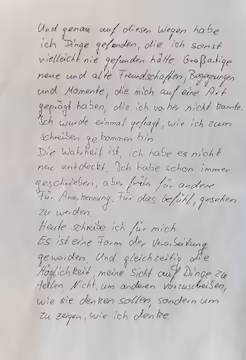 Und genau auf diesen Wegen habe
ich Dinge gefunden, die ich sonst
vielleicht nie gefunden hätte. Großartige
neue und alte Freundschaften, Begegnungen
und Momente, die mich auf eine Art
geprägt haben, die ich vorher nicht kannte.
Ich wurde einmal gefragt, wie ich zum
schreiben gekommen bin.
Die Wahrheit ist, ich habe es nicht
neu entdeckt. Ich habe schon immer
geschrieben, aber früh für andere
Für Anerkennung. Für das Gefühl, gesehen
zu werden.
Heute schreibe ich für mich
Es ist eine Form der
geworden. Und gleichzeitig die
Möglichkeit, meine Sicht auf Dinge zu
teilen. Nicht, um anderen vorzuschreiben,
wie sie denken sollen, sondern um
zu zeigen, wie ich denke.